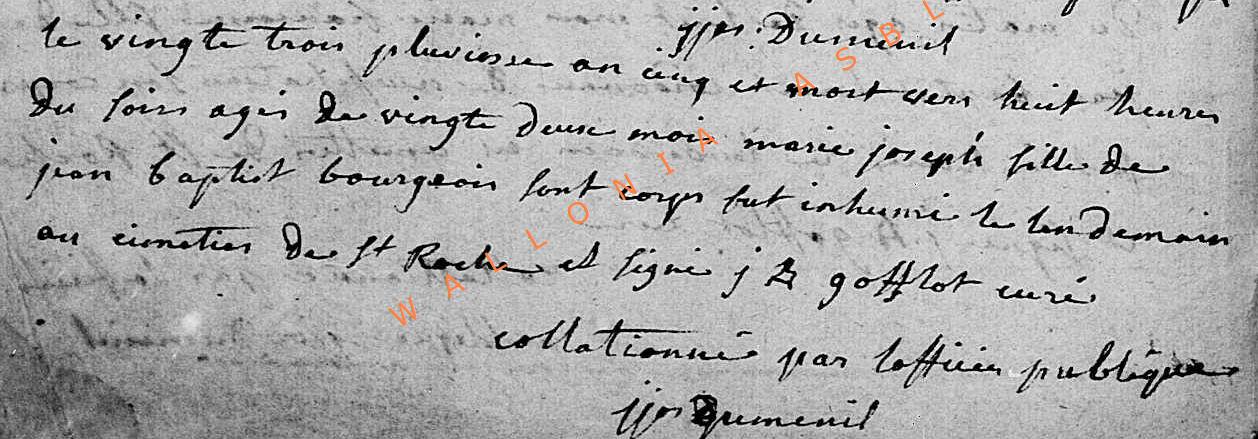 jjos: Dumenil
le vingte trois pluviosse an cinq et mort vers huit heures
du soirs agée de vingte deux mois marie joseph fille de
jean baptist bourgeois sont corps fut inhumé le lendemain
au cimetier de St Roche et signé j B gofflot curé
collationné par lofficier publique
jjos Dumenil
WALLONIA ASBL